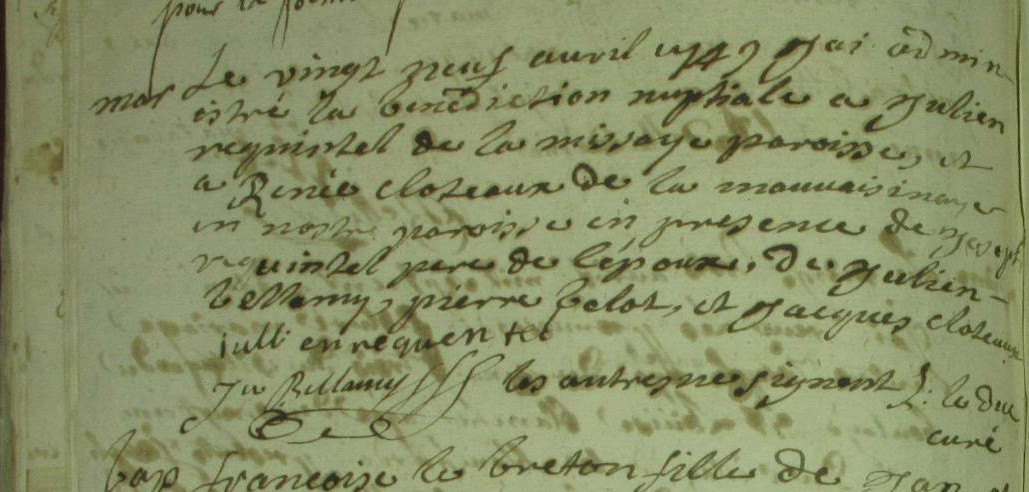 pour la
mar Le vingt neuf avril 1749 Jai admin-
istré la benediction nuptiale a Julien
requintel de la missaye paroisse, et
a Renée cloteaux de la
in nostre paroisse en presence de Jozeph
requintel pere de l'epoux, de Julien
bellamy, pierre belot, et Jacques cloteaux
iulli enrequentel
Ju Bellamy les autres ne signent le duc
curé
bap francoise le breton fille de Jan